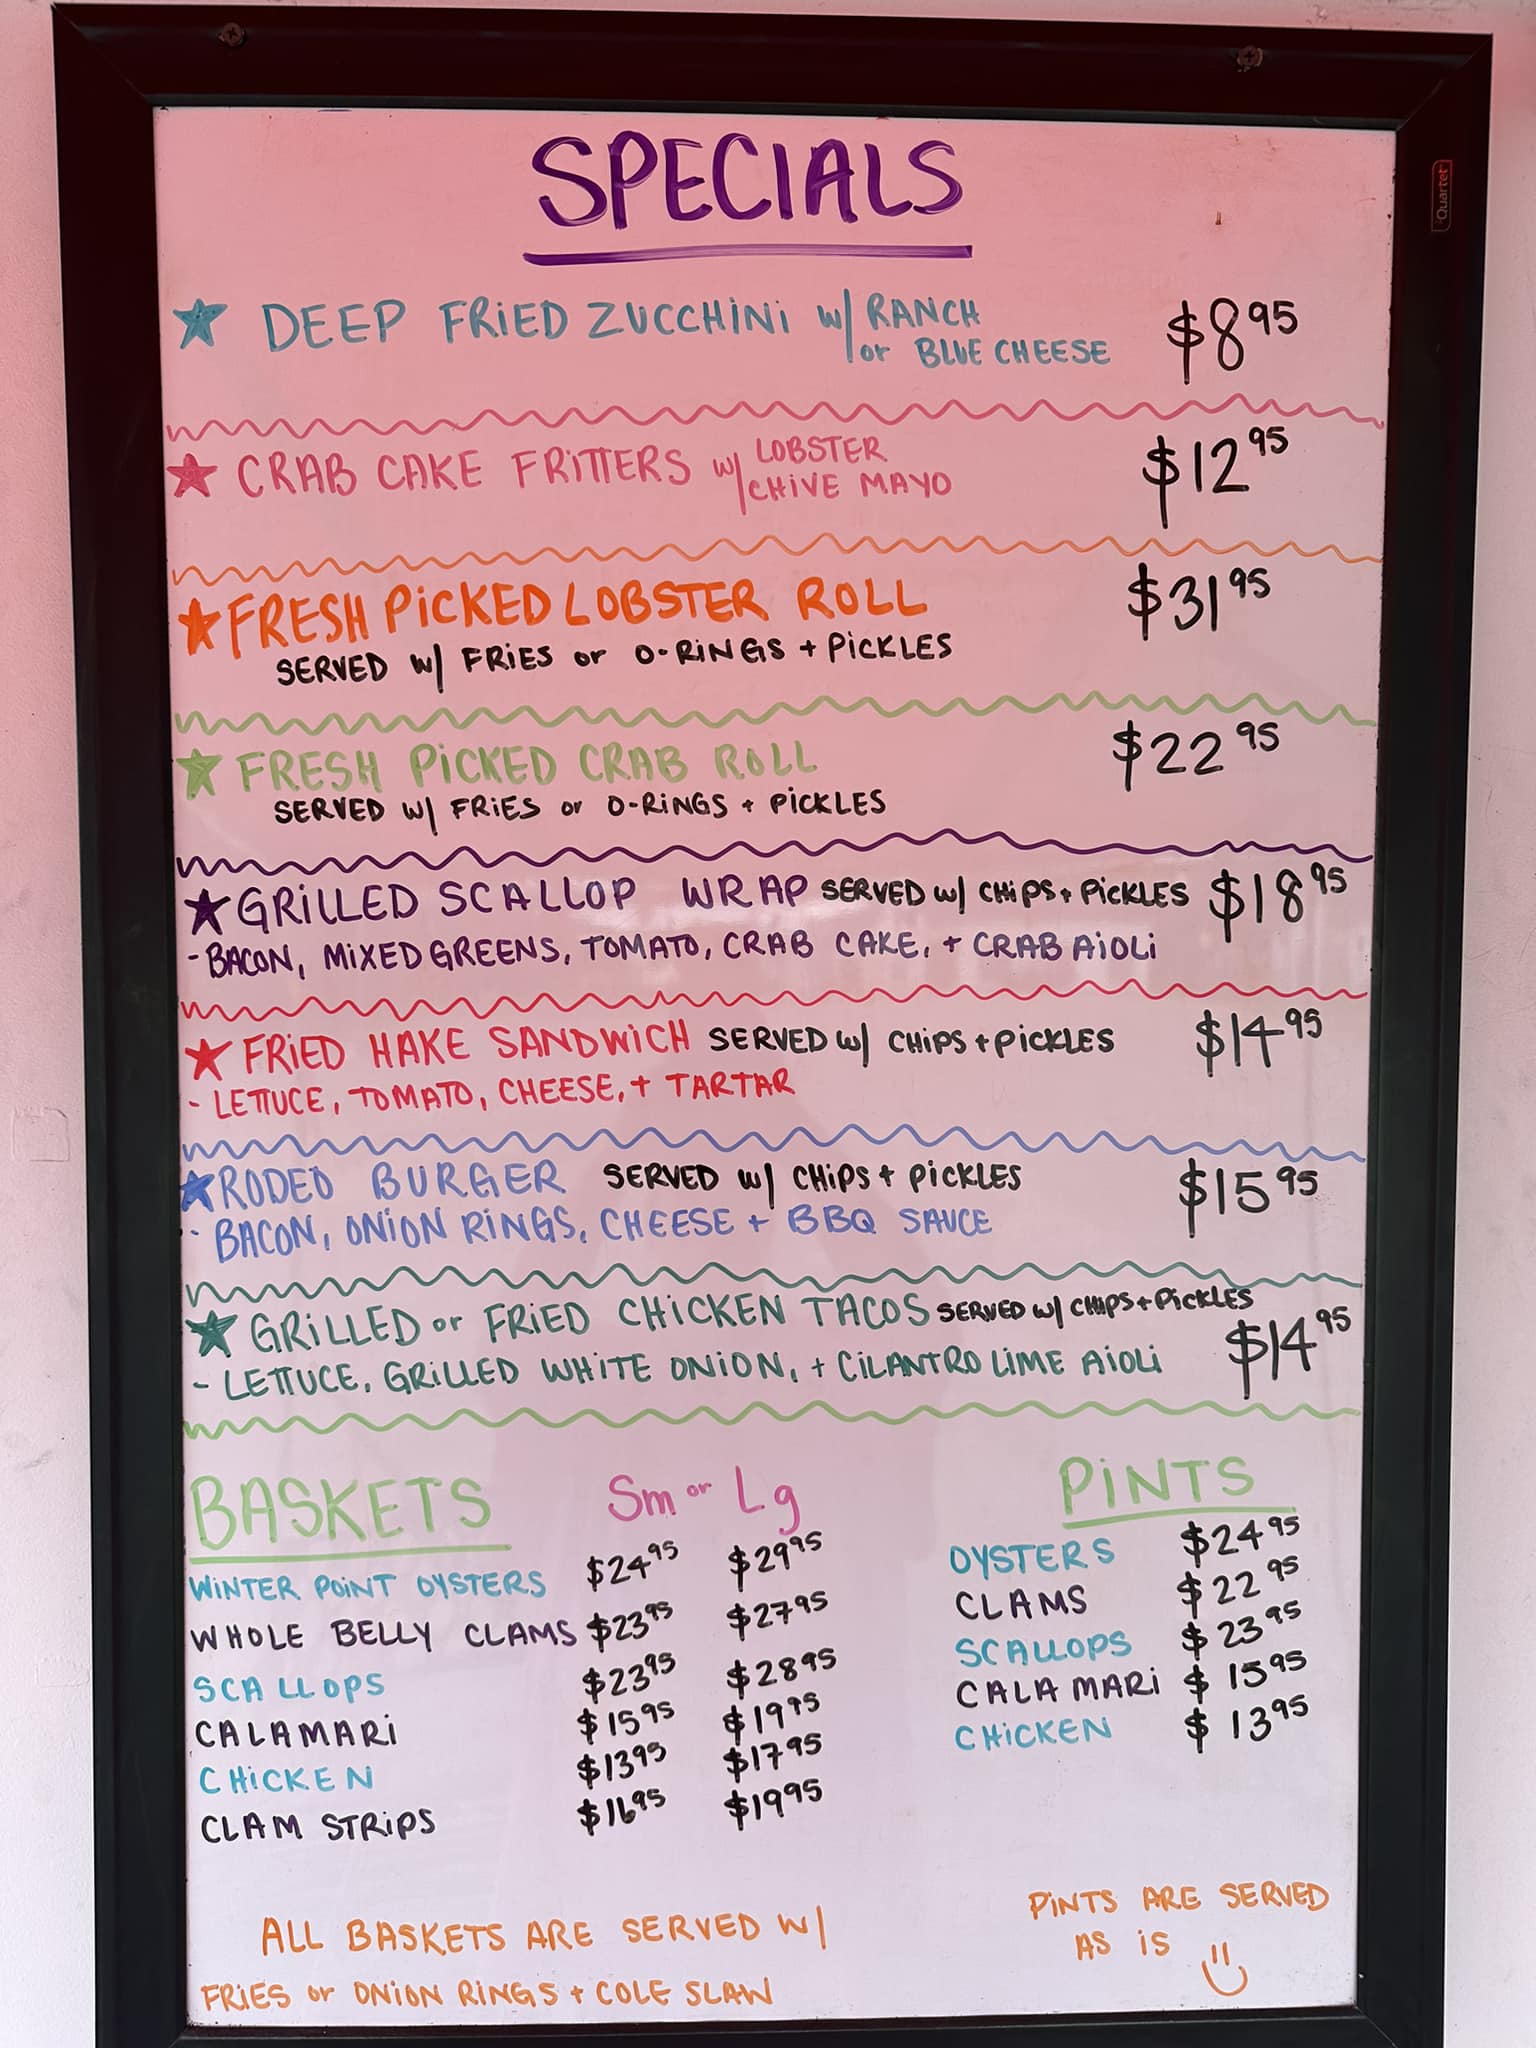 Quartet
SPECIALS
DEEP FRIED ZUCCHINI w/ RANCH or BLUE CHEESE $8.95
CRAB CAKE FRITTERS w/ LOBSTER CHIVE MAYO $12.95
FRESH PICKED LOBSTER ROLL $31.95
SERVED w/ FRIES or O-RINGS + PICKLES
FRESH PICKED CRAB ROLL $22.95
SERVED w/ FRIES or O-RINGS + PICKLES
GRILLED SCALLOP WRAP SERVED w/ CHIPS + PICKLES $18.95
- BACON, MIXED GREENS, TOMATO, CRAB CAKE, + CRAB AIOLI
FRIED HAKE SANDWICH SERVED w/ CHIPS + PICKLES $14.95
- LETTUCE, TOMATO, CHEESE, + TARTAR
RODEO BURGER SERVED w/ CHIPS + PICKLES $15.95
- BACON, ONION RINGS, CHEESE + BBQ SAUCE
GRILLED or FRIED CHICKEN TACOS SERVED w/ CHIPS + PICKLES $14.95
- LETTUCE, GRILLED WHITE ONION, + CILANTRO LIME AIOLI
BASKETS Sm or Lg
WINTER POINT OYSTERS $24.95 $29.95
WHOLE BELLY CLAMS $23.95 $27.95
SCALLOPS $23.95 $28.95
CALAMARI $15.95 $19.95
CHICKEN $13.95 $17.95
CLAM STRIPS $16.95 $19.95
ALL BASKETS ARE SERVED W/
FRIES or ONION RINGS + COLE SLAW
PINTS
OYSTERS $24.95
CLAMS $22.95
SCALLOPS $23.95
CALAMARI $15.95
CHICKEN $13.95
PINTS ARE SERVED
AS IS